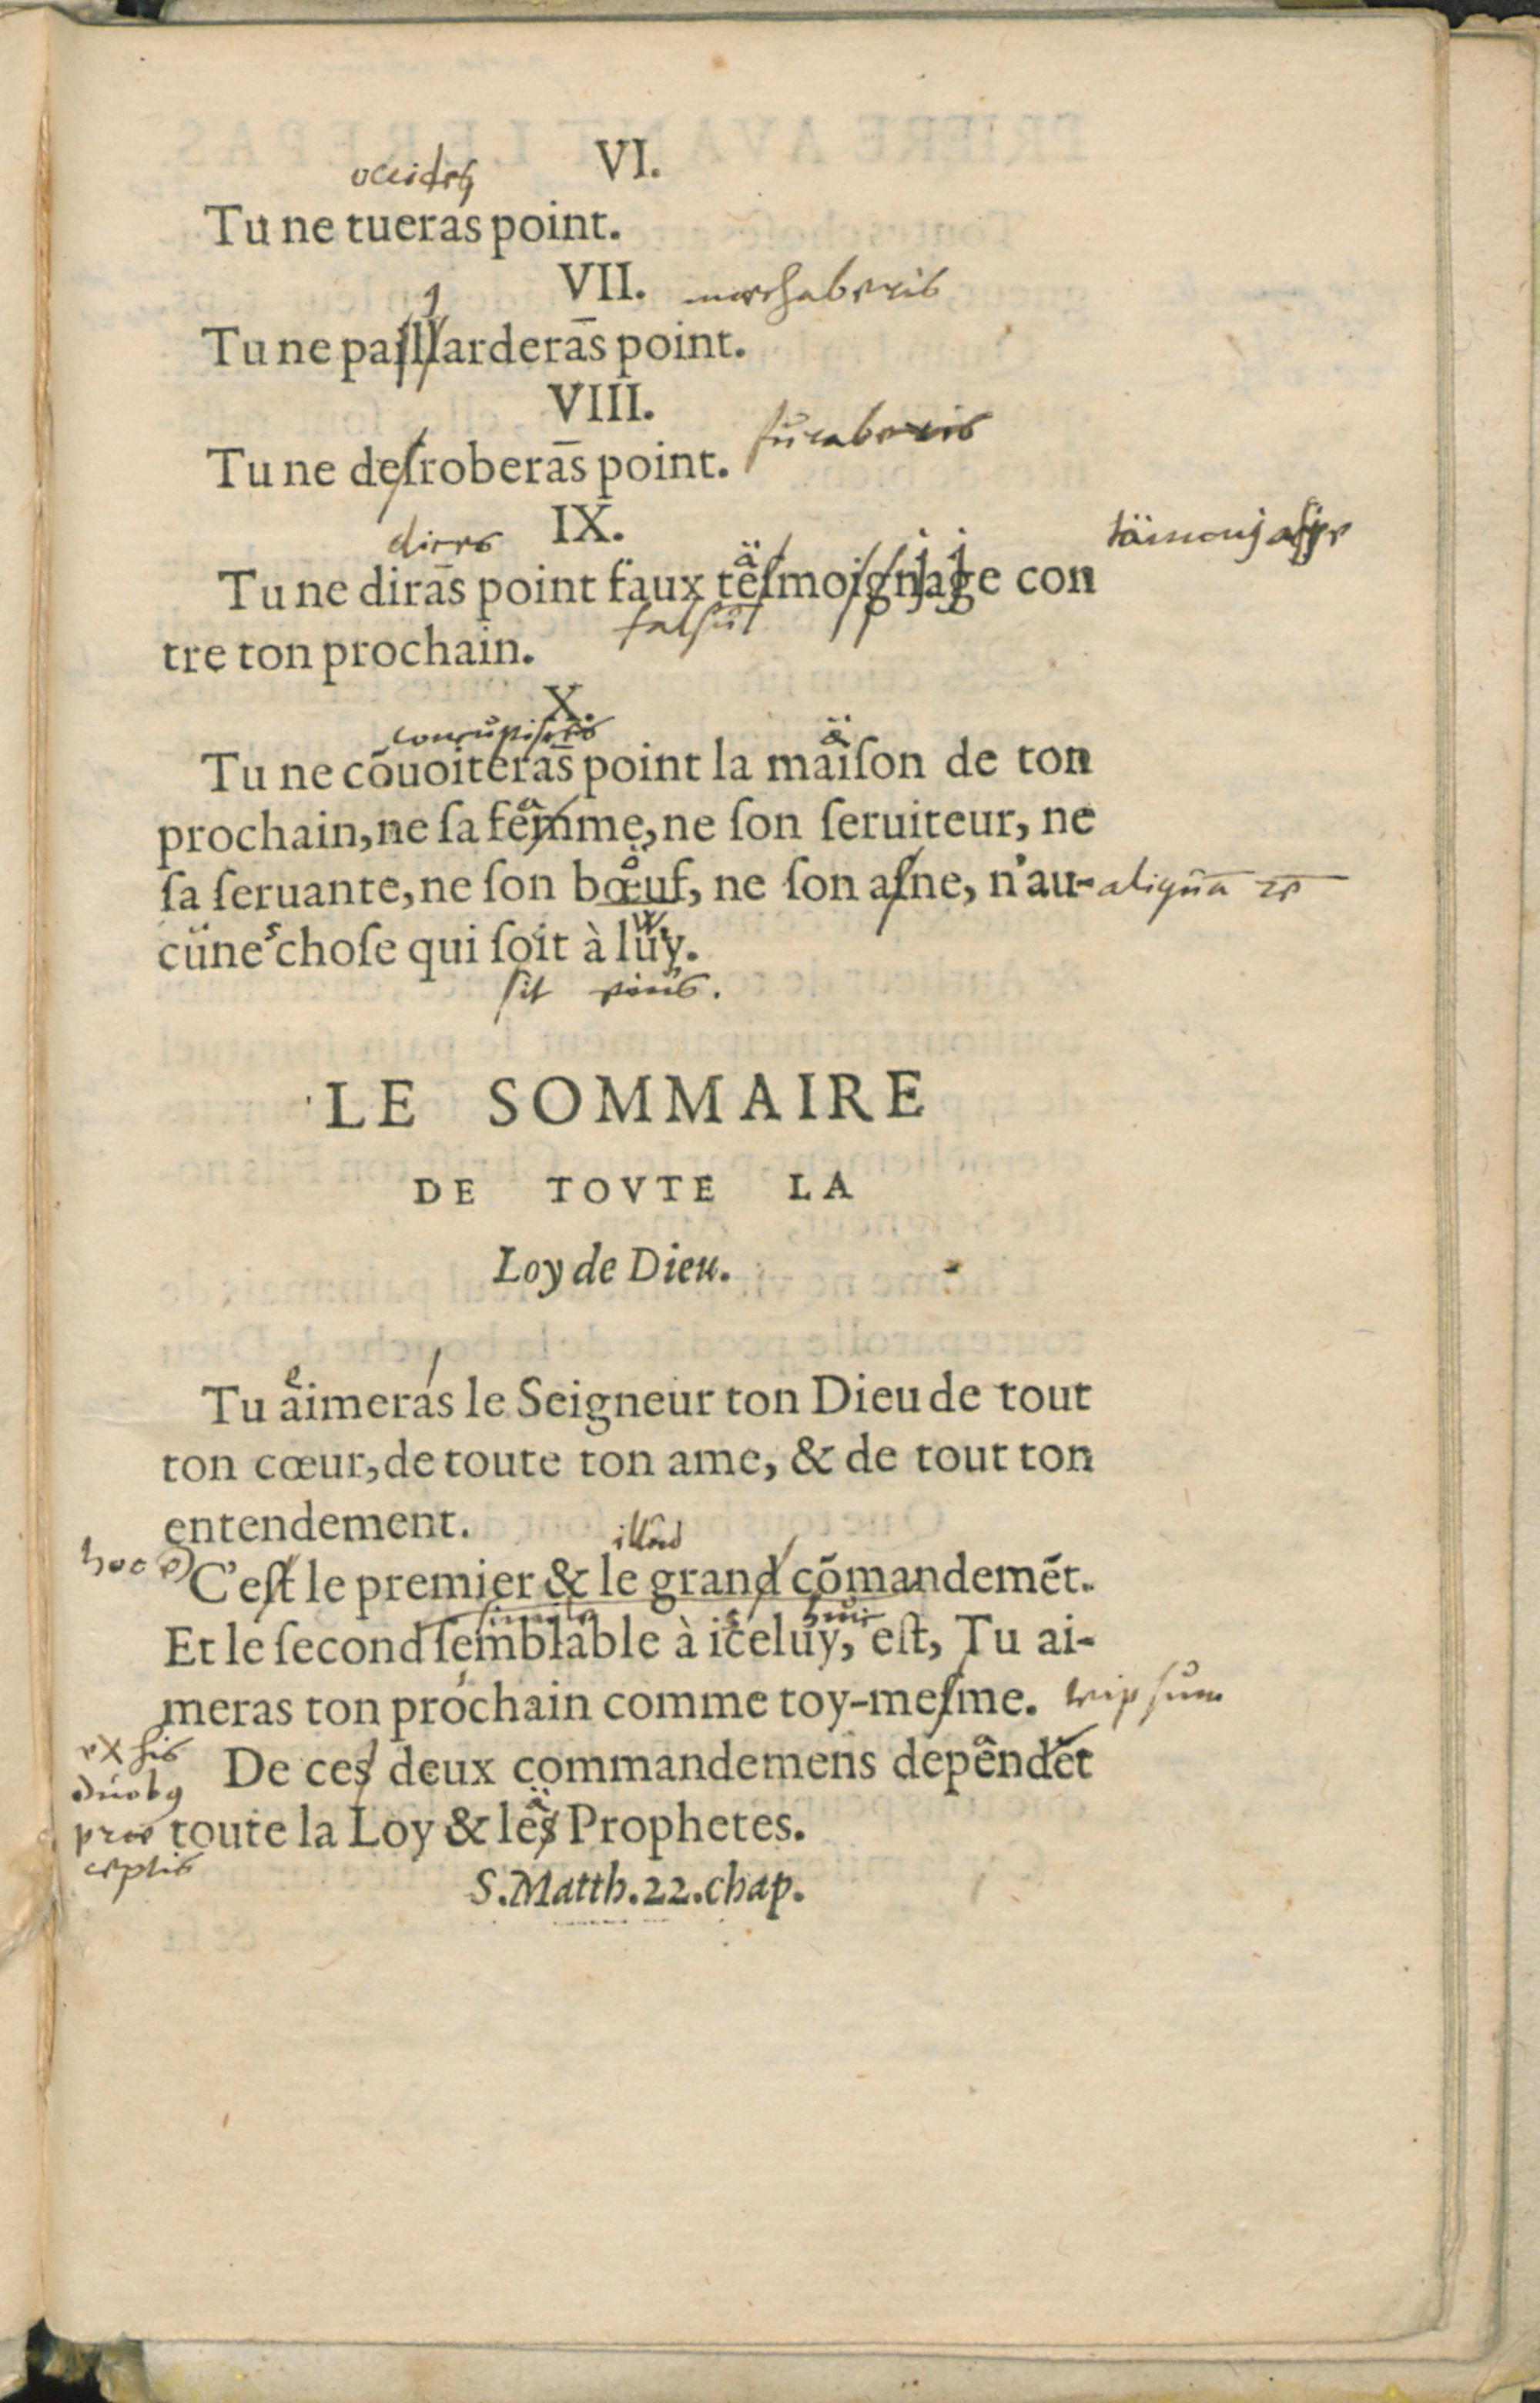 VI.
occides
Tu ne tueras point.
VII.
Tu ne paillarderas point.
VIII.
Tu ne deſroberas point.
IX.
dices
Tu ne diras point faux teſmoignage con
falsū
tre ton prochain.
X.
Tu ne cõuoiteras point la maiſon de ton
prochain, ne ſa femme, ne ſon ſeruiteur, ne
ſa ſeruante, ne ſon bœuf, ne ſon aſne, n'au-
cune choſe qui ſoit à luy.
sit
LE SOMMAIRE
DE TOVTE LA
Loy de Dieu.
Tu aimeras le Seigneur ton Dieu de tout
ton cœur, de toute ton ame, & de tout ton
entendement.
illud
hoc e)
C'eſt le premier & le grand cõmandemẽt.
Et le ſecond ſemblable à iceluy, eſt, Tu ai-
meras ton prochain comme toy-meſme.
De ces deux commandemens depẽndẽt
toute la Loy & les Prophetes.
S. Matth. 22. chap.